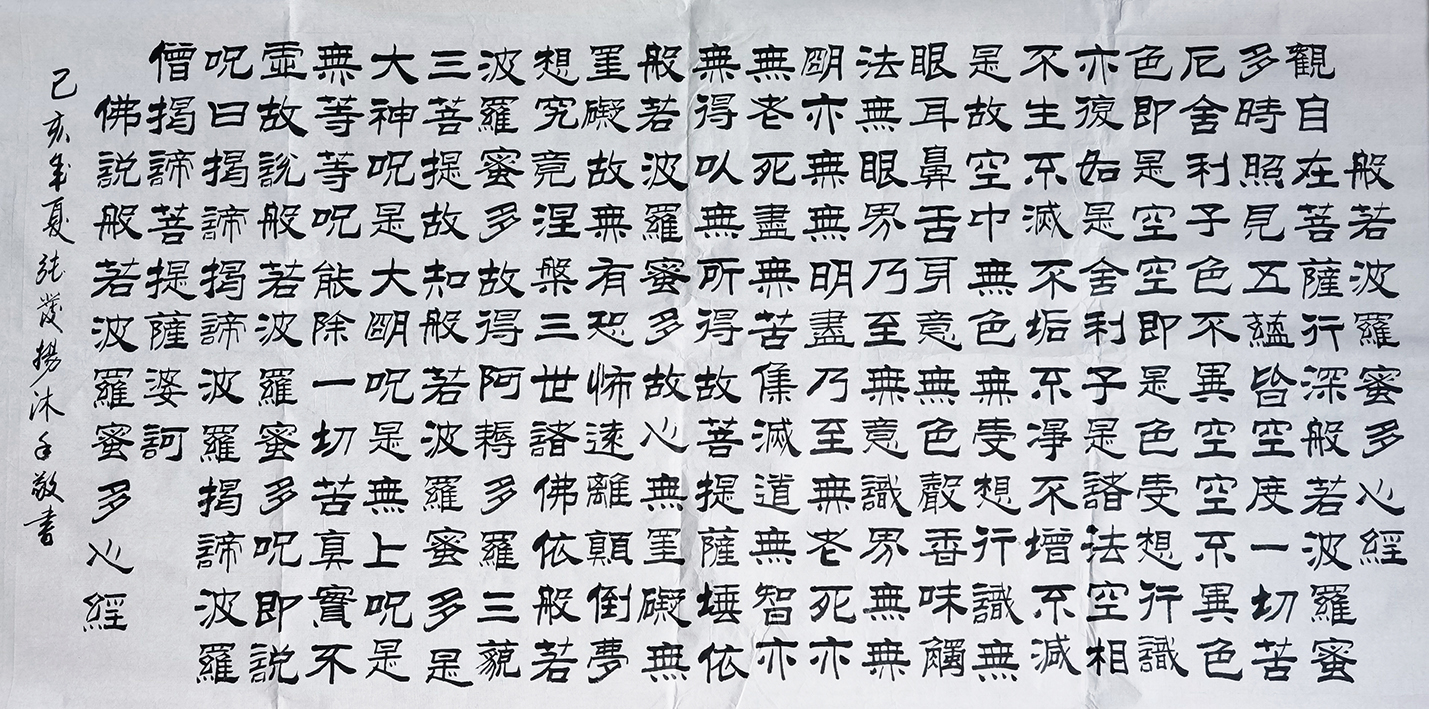 般若波羅蜜多心經
觀自在菩薩行深般若波羅蜜
多時照見五蘊皆空度一切苦
厄舍利子色不異空空不異色
色即是空空即是色受想行識
亦復如是舍利子是諸法空相
不生不滅不垢不淨不增不減
是故空中無色無受想行識無
眼耳鼻舌身意無色聲香味觸
法無眼界乃至無意識界無無
明亦無無明盡乃至無老死亦
無老死盡無苦集滅道無智亦
無得以無所得故菩提薩埵依
般若波羅蜜多故心無罣礙無
罣礙故無有恐怖遠離顛倒夢
想究竟涅槃三世諸佛依般若
波羅蜜多故得阿耨多羅三藐
三菩提故知般若波羅蜜多是
大神呪是大明呪是無上呪是
無等等呪能除一切苦真實不
虛故說般若波羅蜜多呪即說
呪曰揭諦揭諦波羅揭諦波羅
僧揭諦菩提薩婆訶
佛說般若波羅蜜多心經
己亥年夏張發揚沐手敬書